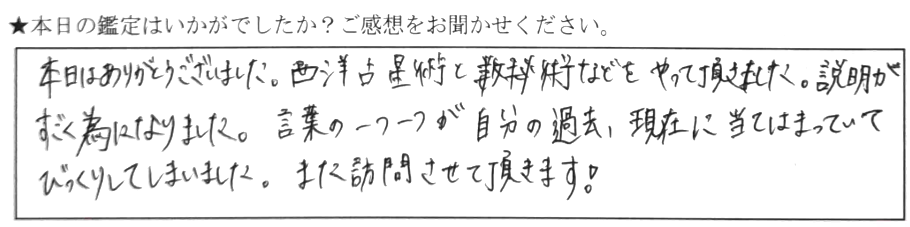 ★本日の鑑定はいかがでしたか？ご感想をお聞かせください。
本日はありがとうございました。西洋占星術と数秘術などをやって頂きました。説明が
すごく為になりました。言葉の一つ一つが自分の過去、現在に当てはまっていて
びっくりしてしまいました。また訪問させて頂きます！